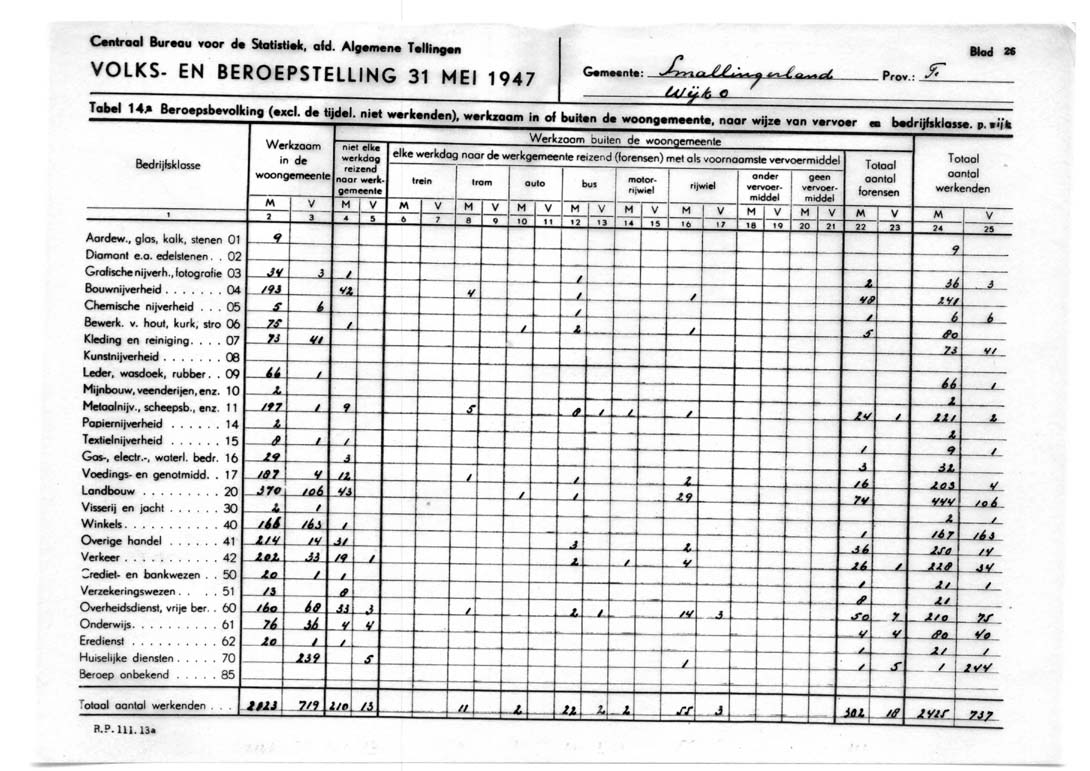 Centraal Bureau voor de Statistiek, afd. Algemene Tellingen
Blad 26
VOLKS- EN BEROEPSTELLING 31 MEI 1947
Gemeente: Smallingerland Prov.: F.
Wijk 0
Tabel 14.a Beroepsbevolking (excl. de tijdel. niet werkenden), werkzaam in of buiten de woongemeente, naar wijze van vervoer en bedrijfsklasse. p. wijk
Bedrijfsklasse
Werkzaam in de woongemeente
Werkzaam buiten de woongemeente
niet elke werkdag reizend naar werkgemeente
elke werkdag naar de werkgemeente reizend (forensen) met als voornaamste vervoermiddel
trein tram auto bus motorrijwiel rijwiel ander vervoermiddel geen vervoermiddel
Totaal aantal forensen
Totaal aantal werkenden
M V M V M V M V M V M V M V M V M V M V M V M V
1 2 3 4 5 6 7 8 9 10 11 12 13 14 15 16 17 18 19 20 21 22 23 24 25
Aardew., glas, kalk, stenen 01 9 9
Diamant e.a. edelstenen . . 02
Grafische nijverh., fotografie 03 34 3 1 1 2 36 3
Bouwnijverheid . . . . . . . 04 193 42 4 1 1 48 241
Chemische nijverheid . . . 05 5 6 1 1 6 6
Bewerk. v. hout, kurk, stro 06 75 1 1 2 1 5 80
Kleding en reiniging. . . . 07 73 41 73 41
Kunstnijverheid . . . . . . . 08
Leder, wasdoek, rubber. . 09 66 1 66 1
Mijnbouw, veenderijen, enz. 10 2 2
Metaalnijv., scheepsb., enz. 11 197 1 9 5 8 1 1 1 24 1 221 2
Papiernijverheid . . . . . . 14 2 2
Textielnijverheid . . . . . . 15 8 1 1 1 9 1
Gas-, electr.-, waterl. bedr. 16 29 3 3 32
Voedings- en genotmidd. . 17 187 4 12 1 1 2 16 203 4
Landbouw . . . . . . . . . 20 370 106 43 1 1 29 74 444 106
Visserij en jacht . . . . . . 30 2 1 2 1
Winkels. . . . . . . . . . . . 40 166 163 1 1 167 163
Overige handel . . . . . . . 41 214 14 31 3 2 36 250 14
Verkeer . . . . . . . . . . . 42 202 33 19 1 2 1 4 26 1 228 34
Crediet- en bankwezen . . 50 20 1 1 1 21 1
Verzekeringswezen . . . . 51 13 8 8 21
Overheidsdienst, vrije ber. . 60 160 68 33 3 1 2 1 14 3 50 7 210 75
Onderwijs. . . . . . . . . . . 61 76 36 4 4 4 4 80 40
Eredienst . . . . . . . . . . 62 20 1 1 1 21 1
Huiselijke diensten . . . . . 70 239 5 1 1 5 1 244
Beroep onbekend . . . . . 85
Totaal aantal werkenden . . . 2123 719 210 13 11 2 22 2 2 55 3 302 18 2425 737
R.P. 111. 13a